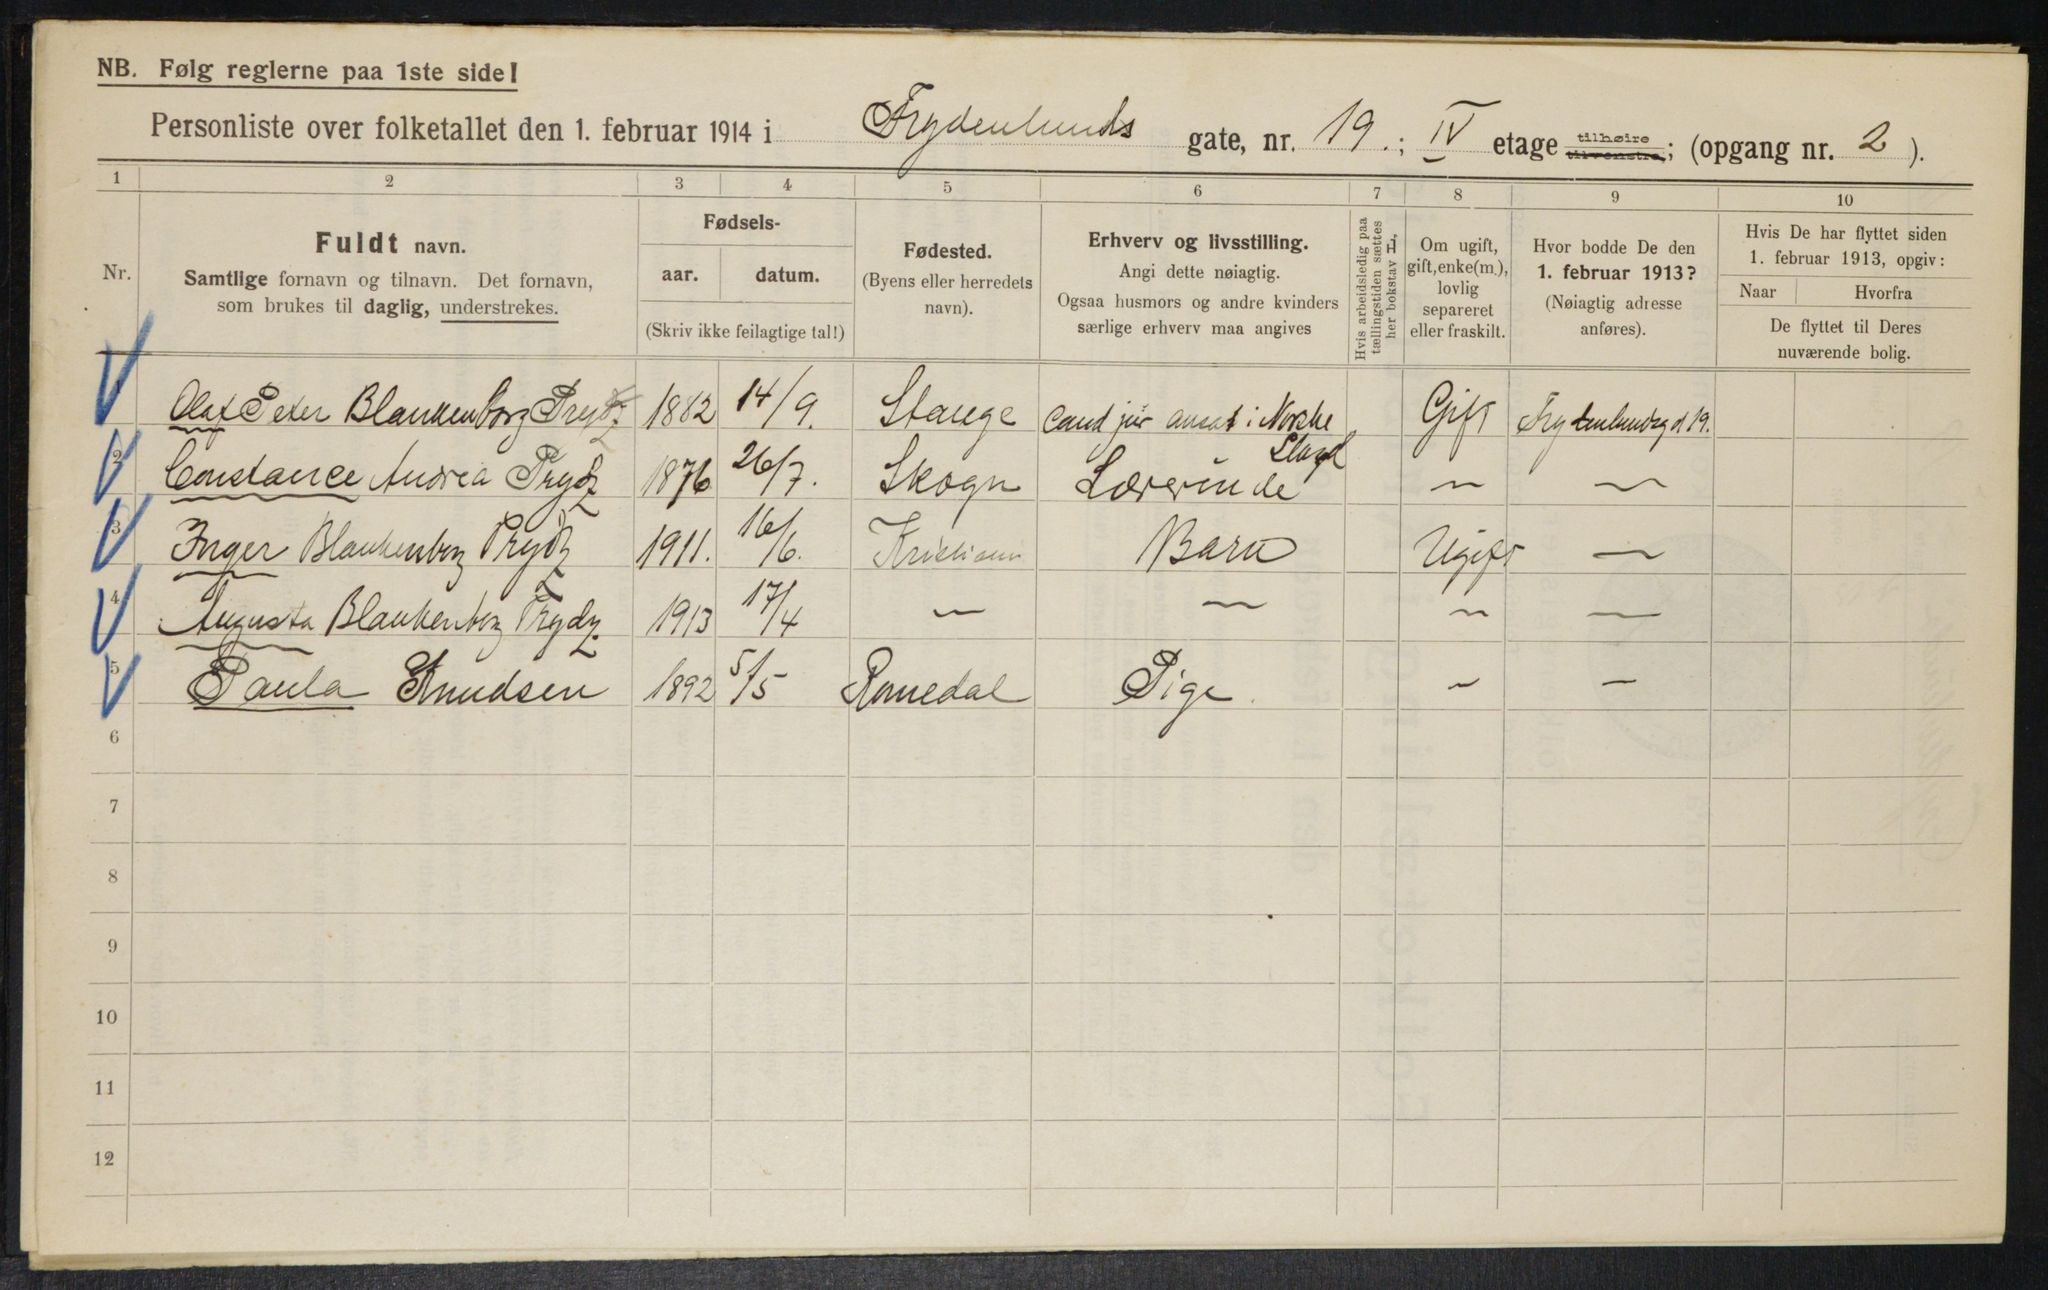 NB. Følg reglerne paa 1ste side!
Personliste over folketallet den 1. februar 1914 i Frydenlunds gate, nr. 19.; IV etage tilhøire tilvenstre; (opgang nr. 2).
1 2 3 4 5 6 7 8 9 10
Nr.
Fuldt navn.
Samtlige fornavn og tilnavn. Det fornavn,
som brukes til daglig, understrekes.
Fødsels-
aar. datum.
(Skriv ikke feilagtige tal!)
Fødested.
(Byens eller herredets
navn).
Erhverv og livsstilling.
Angi dette nøiagtig.
Ogsaa husmors og andre kvinders
særlige erhverv maa angives
Hvis arbeidsledig paa
tællingstiden sættes
her bokstav L.
Om ugift,
gift, enke(m.),
lovlig
separeret
eller fraskilt.
Hvor bodde De den
1. februar 1913?
(Nøiagtig adresse
anføres).
Hvis De har flyttet siden
1. februar 1913, opgiv:
Naar Hvorfra
De flyttet til Deres
nuværende bolig.
1 Olaf Peter Blankenborg Prydz 1882 14/9. Stange Cand jur ansat i Norske Gift Frydenlundsg d 19.
Stand
2 Constance Andrea Prydz 1876 26/7. Skogn Lærerinde — —
3 Inger Blankenborg Prydz 1911. 16/6. Kristiania Barn Ugift —
4 Augusta Blankenborg Prydz 1913 17/4 — — — —
5 Paula Knudsen 1892 5/5 Romedal Pige. — —
6
7
8
9
10
11
12